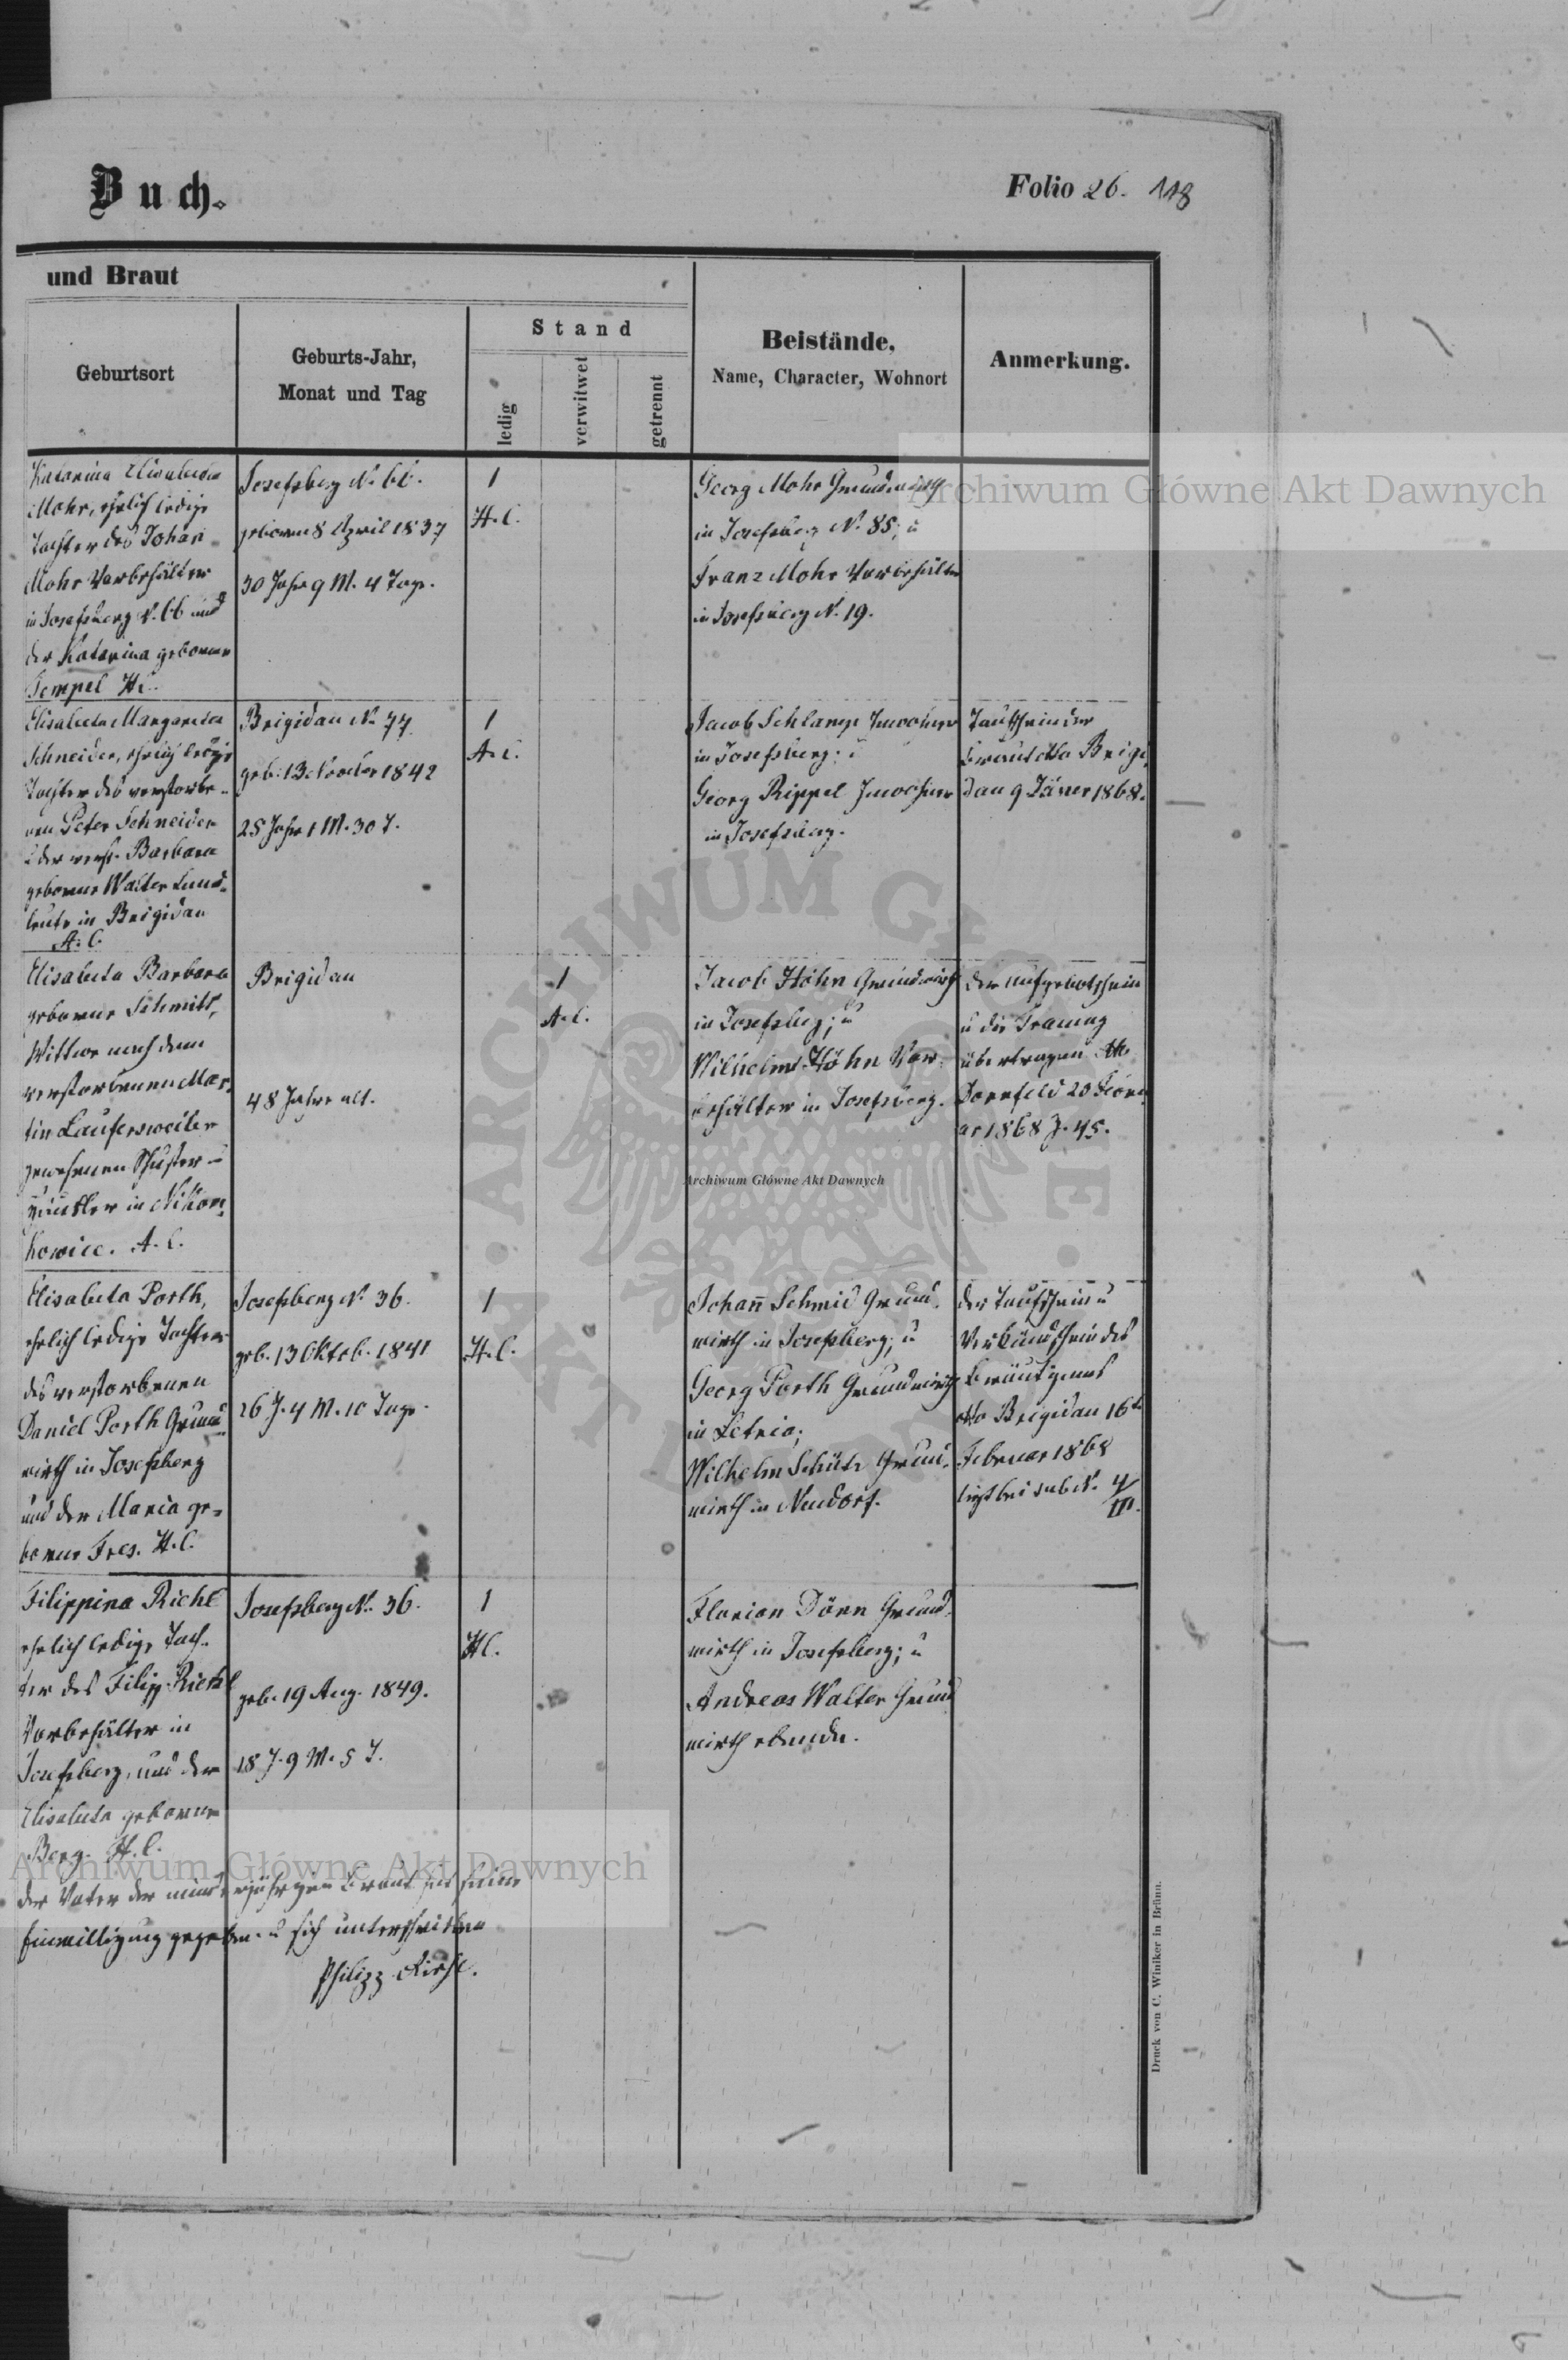 Buch.
Folio 26. 118
und Braut
Geburtsort
Geburts-Jahr,
Monat und Tag
Stand
ledig
verwitwet
getrennt
Beistände,
Name, Character, Wohnort
Anmerkung.
Katarina Elisabeta
Mohr, ehelich ledige
Tochter des Johan
Mohr Vorbehälter
in Josefsberg N. 66 und
der Katarina geborene
Tempel H.C.
Josefsberg N. 66.
geboren 8 April 1837
30 Jahr 9 M. 4 Tage.
1
H.C.
Georg Mohr Grundwirth
in Josefsberg N. 85; u
Franz Mohr Vorbehälter
in Josefsberg N. 19.
Elisabeta Margareta
Schneider, ehelich ledige
Tochter des verstorbe-
nen Peter Schneider
u der verst. Barbara
geborene Walter Land-
leute in Brigidau
A.C.
Brigidau N. 77.
geb. 13 November 1842
25 Jahr 1 M. 30 T.
1
A.C.
Jacob Schlamp Inwohner
in Josefsberg; u
Georg Rippel Inwohner
in Josefsberg.
Taufschein der
Braut dto Brigi
dau 9 Jäner 1868.
Elisabeta Barbara
geborene Schmitt,
Wittwe nach dem
verstorbenen Mar-
tin Laufersweiler
gewesenen Schuster u
Häusler in Nikon-
kowice. A.C.
Brigidau
48 Jahre alt.
1
A.C.
Jacob Höhn Grundwirth
in Josefsberg; u
Wilhelm Höhn Vor-
behälter in Josefsberg.
Der Aufgebotschein
u die Trauung
übertragen dto
Dornfeld 20 Febru
ar 1868 Z. 45.
Elisabeta Porth,
ehelich ledige Tochter
des verstorbenen
Daniel Porth Grund-
wirth in Josefsberg
und der Maria ge-
borene Fres. H.C.
Josefsberg N. 36.
geb. 13 Oktob. 1841
26 J. 4 M. 10 Tage.
1
H.C.
Johann Schmid Grund-
wirth in Josefsberg; u
Georg Porth Grundwirth
in Letnia;
Wilhelm Schütz Grund-
wirth in Neudorf.
Der Taufschein u
Verkündschein des
Bräutigams
dto Brigidau 16t
Februar 1868
liegt bei sub N. 4/III.
Filippina Richl
ehelich ledige Toch-
ter des Filipp Richl
Vorbehälter in
Josefsberg, und der
Elisabeta geborene
Berg. H.C.
Josefsberg N. 36.
geb. 19 Aug. 1849.
18 J. 9 M. 5 T.
1
H.C.
Florian Dörn Grund-
wirth in Josefsberg; u
Andreas Walter Grund
wirth ebenda.
Der Vater der minderjährigen Braut hat seine
Einwilligung gegeben u sich unterschrieben
Philipp Richl.
Druck von C. Winiker in Brünn.
Archiwum Główne Akt Dawnych
Archiwum Główne Akt Dawnych
Archiwum Główne Akt Dawnych